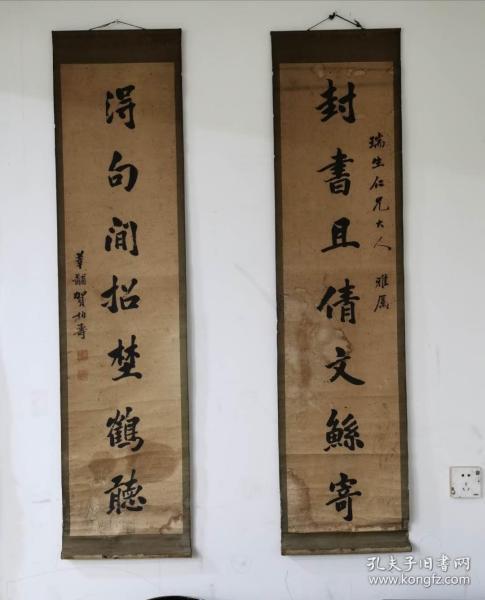 封書且倩文鯀寄
瑞生仁兄大人 雅属
淂句閒招埜鶴聽
賀柏壽
孔夫子旧书网
www.kongfz.com